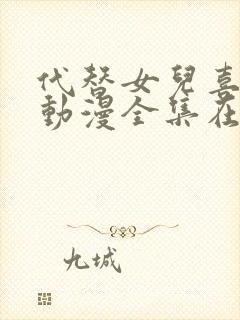 代替女兒喜
動漫全集在
九城